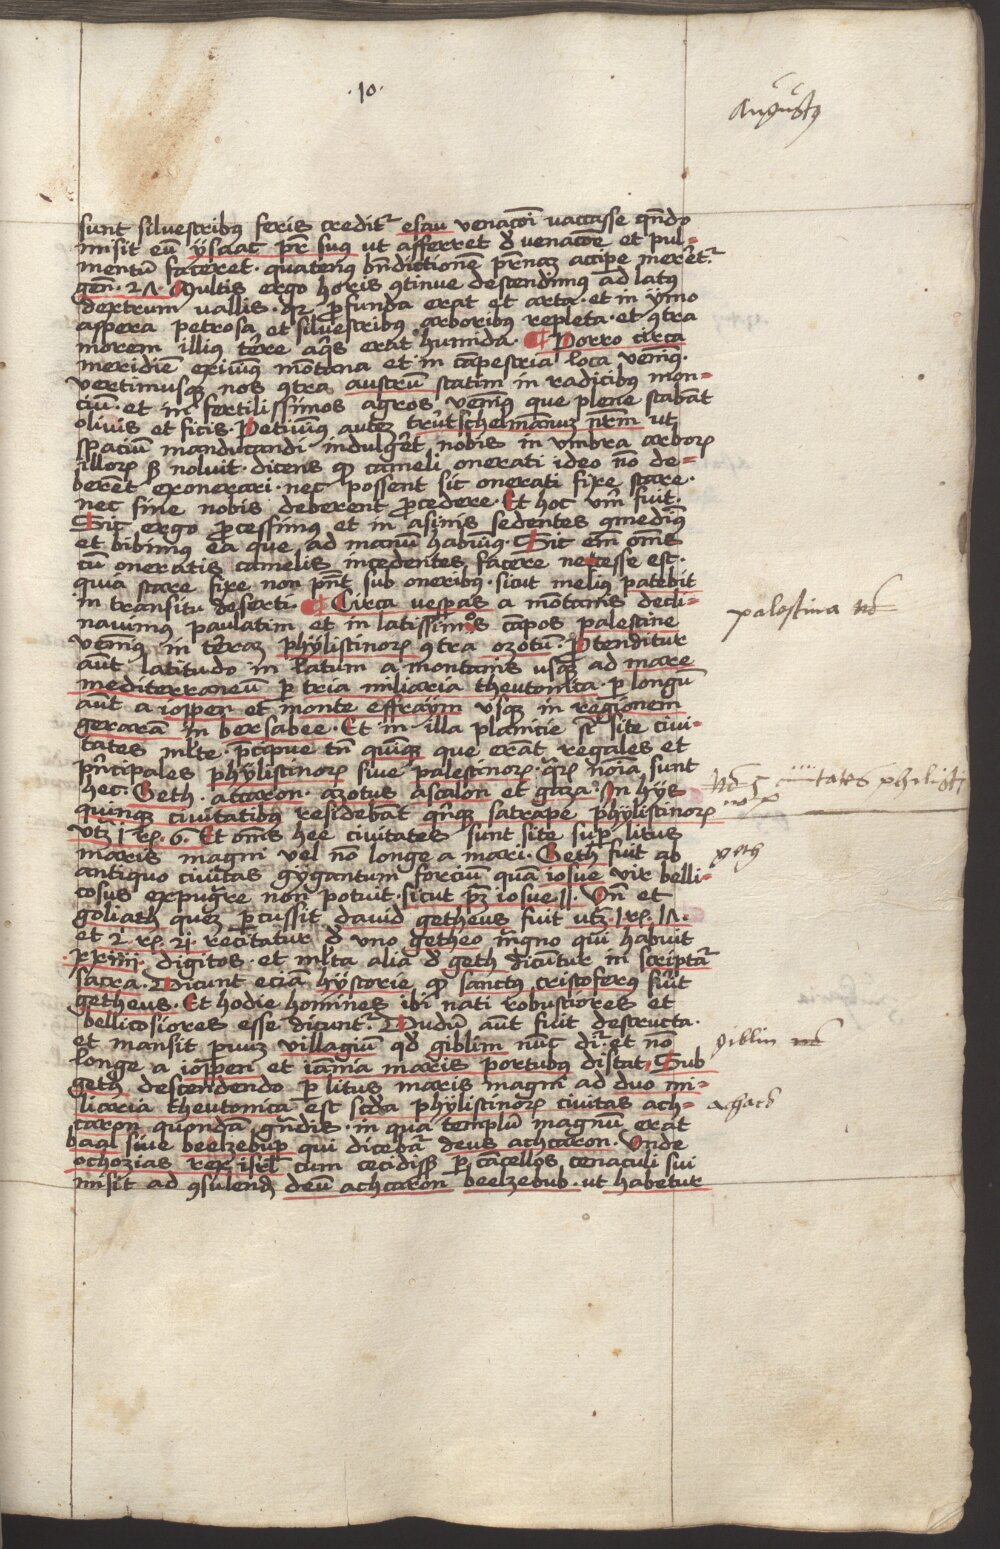 ·10·
Augustus
sunt silvestribus feris creditr esau venacōi vaccasse qn̄do
misit eū ysaac pr̄ suus ut afferret d̄ venacōe et pul=
mentū faceret · quatenus bn̄dictionem pr̄nam accipe meretr
gen̄ · 27 · Multis ergo horis ꝯtinue descendimus ad latus
dextrum vallis · qz profunda erat et arta · et in ymo
aspera petrosa et silvestribus arboribus repleta · et ꝯtra
morem illius terre aq̄s erat humida · Porro circa
meridiē exivimus mōtana et in cāpestria loca venimꝰ ·
vertimusqz nos ꝯtra austrū statim in radicibus mon=
ciū · et in fertilissimos agros venimꝰ que plene stabāt
olivis et ficis · Petivimꝰ autez trutschelmānum nr̄m ut
spaciū manducandi indulgeret nobis in umbra arborꝝ
illorꝝ sz noluit · dicens qꝫ cameli onerati ideo nō de=
berēt exonerari · nec possent sic onerati fixe stare ·
nec sine nobis deberent procedere · Et hoc verū fuit ·
Sic ergo processimus et in asinis sedentes ꝯmedimꝰ
et bibimus ea que ad manū habuimꝰ · Sic em̄ om̄s
cū oneratis camelis incedentes facere necesse est ·
quia stare fixe non pn̄t sub oneribus · sicut melius patebit
in transitu deserti · Circa vesp̄as a mōtanis decli=
navimus paulatim et in latissimos cāpos palestine
venimꝰ in terram phylistinorꝝ ꝯtra ozotū · Protenditur
aūt latitudo in latum a montanis usqz ad mare
mediterraneū per tria miliaria theutonica · per longū
aūt a ioppen et monte effraym usqz in regionem
gerarā in bersabee · Et in illa planicie st̄ site civi=
tates ml̄te · precipue tn̄ quinqz que erāt regales et
principales phylistinorꝝ sive palestinorꝝ · q̄rꝝ noīa sunt
hec · Geth · accaron · azotus ascalon et gaza · In hys
quinqz civitatibus residebāt quinqz satrape phylistinorꝝ
utz 1 rꝝ · 6 · Et om̄s hee civitates sunt site super litus
maris magni vel nō longe a mari · Geth fuit ab
antiquo civitas gygantum forciū quā iosue vir belli=
cosus expugnare non potuit · sicut pz iosue 11 · Un̄ et
goliath quez percussit david getheus fuit utz 1 rꝝ 17 ·
et 2 rꝝ 21 recitatur d̄ uno getheo magno qui habuit
xxiiii digitos · et ml̄ta alia d̄ geth dicūtur in scriptura
sacra · Dicunt eciā hystorie qꝫ sanctus cristoferus fuit
getheus · Et hodie homines ibi nati robustiores et
bellicosiores esse dicuntr · Dudū aūt fuit destructa ·
et mansit parvum villagiū qd̄ giblim nūc dr̄ · et nō
longe a ioppen et iamnia maris portubus distat · Sub
geth descendendo per litus maris magni ad duo mi=
licaria theutonica est scd̄a phylistinorꝝ civitas ach=
caron quondā grandis · in qua templū magnū erat
baal sive beelzebup qui dicebatr deus achcaron · Unde
ochozias rex isrl̄ cum cecidisset per cācellos cenaculi sui
misit ad ꝯsulendum deū achcaron beelzebub · ut habetur
palestina no
No 5 civitates philisti
geth
giblin no